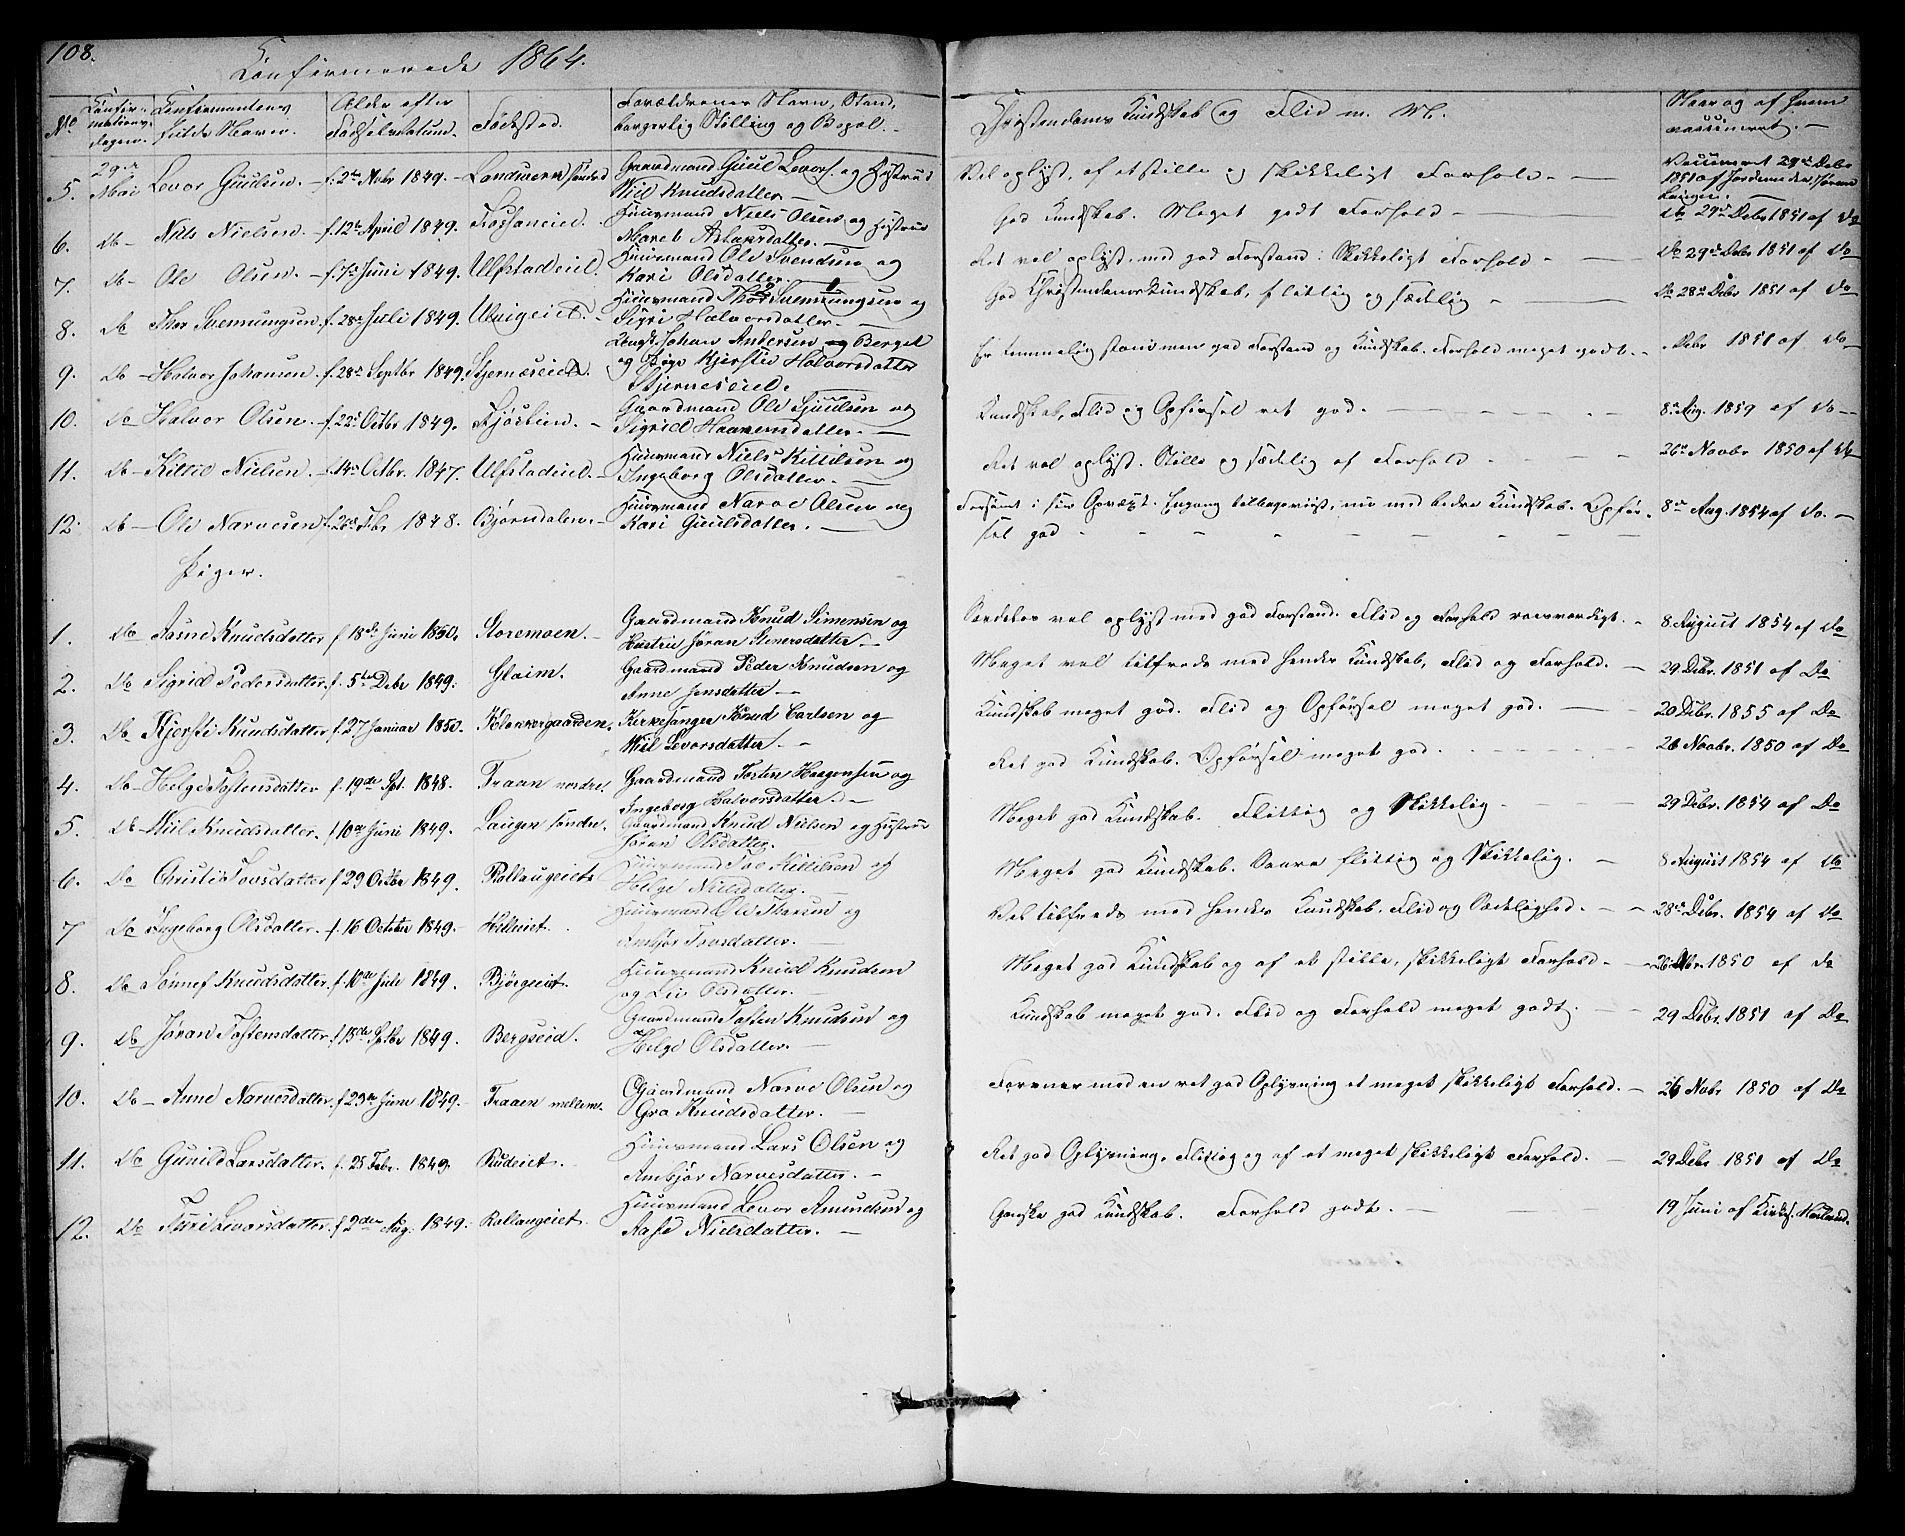 108.
Confirmerede 1864.
No
Confir-
mations-
dagen.
Confirmantens
fulde Navn.
Alder efter
Fødselsdatum.
Fødested.
Forældrenes Navn, Stand,
borgerlig Stilling og Bopæl.
Christendoms Kundskab og Flid m. M.
Naar og af hvem
vaccineret.
5. 29de Mai Levor Guulsen. f. 2den Nobr 1849. Landværk søndre Gaardmand Guul Levors. og Hustrue
Wiil Knudsdatter. Vel oplyst, af et stille og skikkeligt Forhold. Vaccineret 29de Debr
1851 af Jordemoder Sørine
6. do Niels Nielsen. f. 12te April 1849. Huusmand Niels Olsen og Hustrue
Maret Aslaksdatter. God Kundskab. Meget godt Forhold do 29de Debr 1851 af do
7. do Ole Olsen. f. 7de Juni 1849. Ulfstadeied. Huusmand Ole Svendsen og
Kari Olsdatter Ret vel oplyst, med god Forstand. Skikkeligt Forhold do 29de Debr 1851 af do
8. do Thor Svennungsen f. 28de Juli 1849. Huusmand Thor Svennungsen og
Sigri Halvorsdatter. God Christendomskundskab, flittig og sædelig do 28de Debr 1851 af do
9. do Halvor Johansen. f. 28de Septbr 1849. Stjerneseied. Johan Andersen Berget
og Pige Kjerstie Halvorsdatter
Stjerneseied. Er temmelig men god Forstand og Kundskab. Forhold meget godt. Debr 1851 af do
10. do Halvor Olsen. f. 22de Octbr 1849. Fjøsbien. Gaardmand Ole Sjuulsen og
Sigrid Haavorsdatter. Kundskab, Flid og Opførsel ret god. 8de Aug. 1859 af do
11. do Kittil Nielsen. f. 14de Octbr. 1847. Ulfstadeied. Huusmand Niels Kittilsen og
Ingeborg Olsdatter. Ret vel oplyst. Stille og sædelig af Forhold 26de Novbr 1850 af do
12. do Ole Narvesen f. 26de Fbr 1848. Bjørndalen. Huusmand Narve Olsen og
Kari Guulsdatter. Forsømt i sin Opvext. Engang tilbageviist, nu med bedre Kundskab. Opfør-
sel god 8de Aug. 1854 af do.
Piger.
1. do Aasne Knudsdatter f. 18de Juni 1850. Storemoen. Gaardmand Knud Simensen og
Hustru Jøran Gunersdatter Særdeles vel oplyst med god Forstand. Flid og Forhold roesværdigt. 8 August 1854 af do
2. do Sigrid Pedersdatter. f. 5te Debr 1849. Glaim. Gaardmand Peder Knudsen og
Anne Jensdatter Meget vel tilfreds med hendes Kundskab, Flid og Forhold. 29 Debr. 1851 af Do
3. Do Kjersti Knudsdatter f. 27 Januar 1850. Klokkergaarden. Kirkesanger Knud Carlsen og
Wiil Levorsdatter. Kundskab meget god. Flid og Opførsel meget god. 20 Debr. 1855 af Do
4. do Helge Tostensdatter f. 19de Spt. 1848. Traaen nordre. Gaardmand Tosten Haagensen og
Ingeborg Halvorsdatter. Ret god Kundskab. Opførsel meget god. 26 Novbr. 1850 af Do
5. do Wiil Knudsdatter. f. 10de Juni 1849. Laugen søndre. Gaardmand Knud Nielsen og Hustrue
Jøran Olsdatter. Meget god Kundskab. Flittig og Skikkelig. 29 Debr. 1854 af Do
6. Do Christie Tovsdatter f. 29 Octbr 1849. Rollaugeiet. Huusmand Tov Kittilsen og
Helge Nielsdatter. Meget god Kundskab. Saare flittig og Skikkelig. 8 August 1854 af do
7 Do Ingeborg Olsdatter. f. 16 October 1849. Helleiet. Huusmand Ole Tharsen og
Ambjør Tovsdatter. Vel tilfreds med hendes Kundskab. Flid og Sædelighed. 28de Debr. 1854 af Do
8. Do Sønnef Knudsdatter. f. 10de Juli 1849. Bjørgeiet. Huusmand Knud Knudsen
og Liv Olsdatter. Meget god Kundskab og af et stille, skikkeligt Forhold. 1850 af do
9. Do Jøran Tostensdatter f. 13de Sptbr 1849. Bergseid. Gaardmand Tosten Knudsen og
Helge Olsdatter. Kundskab meget god. Flid og Forhold meget godt. 29 Debr. 1851 af Do
10. Do Anne Narvesdatter. f. 23de Juni 1849. Traaen mellem. Gaardmand Narve Olsen og
Gro Knudsdatter. Forener med en ret god Oplysning et meget skikkeligt Forhold. 26 Nobr 1850 af Do
11. Do Gunild Larsdatter. f. 25 Febr. 1849. Rudeiet. Huusmand Lars Olsen og
Ambjør Narvesdatter. Ret god Oplysning. Flittig og af et meget skikkeligt Forhold. 29 Debr 1851 af Do
12. Do Turi Levorsdatter. f. 2den Aug. 1849. Rollaugeiet. Huusmand Levor Amundsen og
Aase Nielsdatter. Ganske god Kundskab. Forhold godt. 19 Juni af Kirkes.